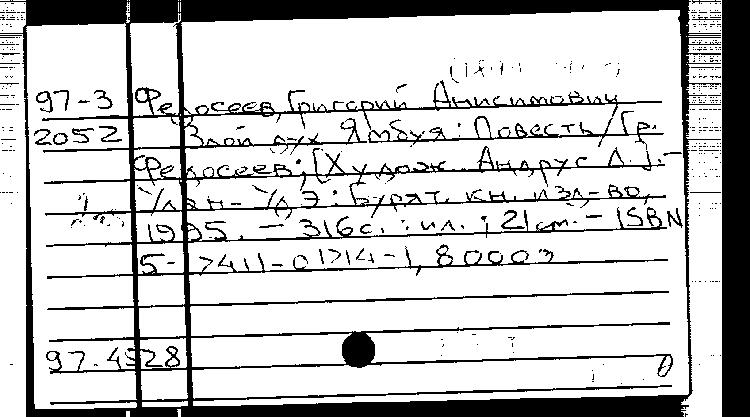 97-3 Федосеев, Григорий Анисимович
2052 Злой дух Ямбуя : Повесть / Гр.
Федосеев; [Худож. Андрус Л.]. -
Улан-Удэ : Бурят. кн. изд-во,
1995. - 316с. : ил. ; 21см. - ISBN
5-7411-01714-1, 8000э
97-4528